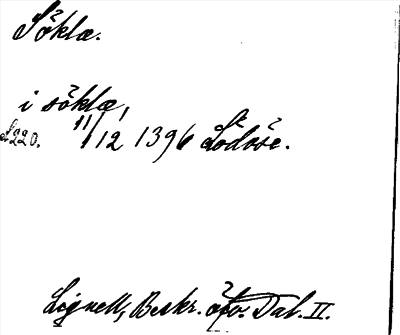 Sökla.
i söklæ,
S.220. 11/12 1396 Lödöse.
Lignell, Beskr. öfv. Dal. II.